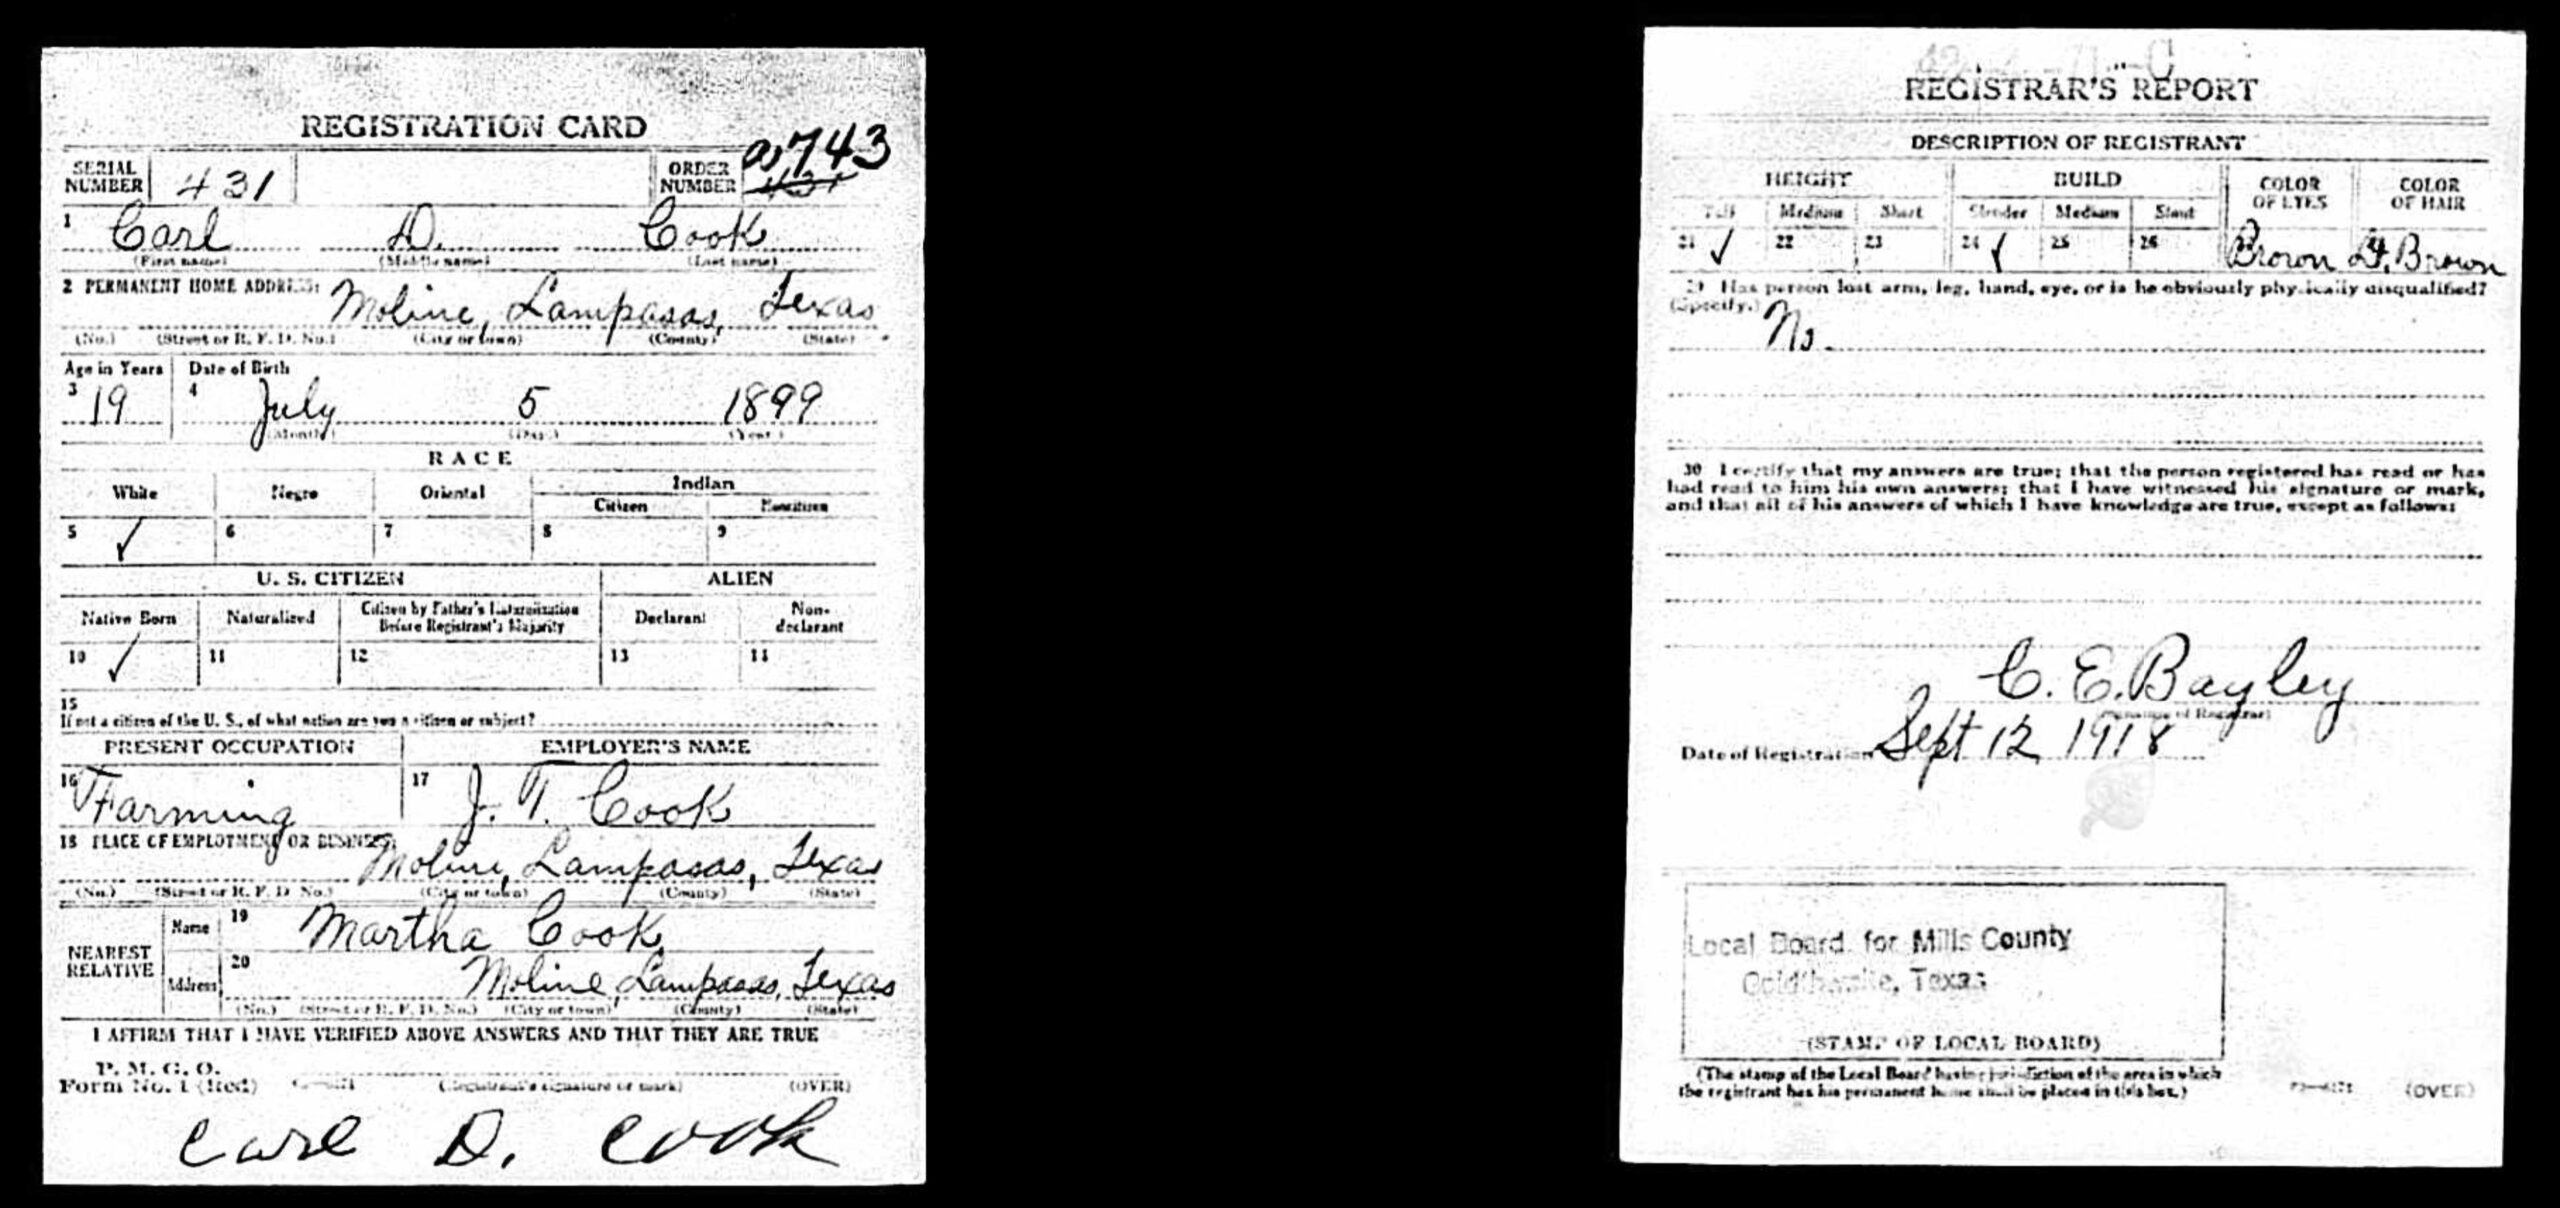 REGISTRATION CARD
SERIAL NUMBER 431 ORDER NUMBER 743
1 Carl D. Cook
(First name) (Middle name) (Last name)
2 PERMANENT HOME ADDRESS: Moline, Lampasas, Texas
(No.) (Street or R. F. D. No.) (City or town) (County) (State)
Age in Years Date of Birth
3 19 4 July 5 1899
(Month) (Day) (Year)
RACE
White Negro Oriental Indian
Citizen Noncitizen
5 ✓ 6 7 8 9
U. S. CITIZEN ALIEN
Native Born Naturalized Citizen by Father's Naturalization Before Registrant's Majority Declarant Non-declarant
10 ✓ 11 12 13 14
15
If not a citizen of the U. S., of what nation are you a citizen or subject?
PRESENT OCCUPATION EMPLOYER'S NAME
16 Farming 17 J. T. Cook
18 PLACE OF EMPLOYMENT OR BUSINESS: Moline, Lampasas, Texas
(No.) (Street or R. F. D. No.) (City or town) (County) (State)
NEAREST RELATIVE Name 19 Martha Cook
Address 20 Moline, Lampasas, Texas
(No.) (Street or R. F. D. No.) (City or town) (County) (State)
I AFFIRM THAT I HAVE VERIFIED ABOVE ANSWERS AND THAT THEY ARE TRUE
P. M. G. O.
Form No. 1 (Red) (Registrant's signature or mark) (OVER)
Carl D. Cook
REGISTRAR'S REPORT
DESCRIPTION OF REGISTRANT
HEIGHT BUILD COLOR OF EYES COLOR OF HAIR
Tall Medium Short Slender Medium Stout
21 ✓ 22 23 24 ✓ 25 26 Brown Lt. Brown
29 Has person lost arm, leg, hand, eye, or is he obviously physically disqualified?
(Specify.) No.
30 I certify that my answers are true; that the person registered has read or has
had read to him his own answers; that I have witnessed his signature or mark,
and that all of his answers of which I have knowledge are true, except as follows:
C. E. Bayley
(Signature of Registrar)
Date of Registration Sept 12, 1918
Local Board for Mills County
Goldthwaite, Texas
(STAMP OF LOCAL BOARD)
(The stamp of the Local Board having jurisdiction of the area in which
the registrant has his permanent home shall be placed in this box.)
(OVER)